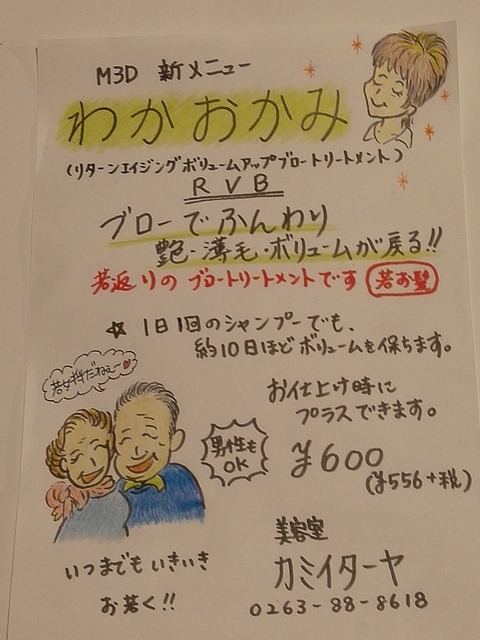 M3D 新メニュー
わかおかみ
(リターンエイジングボリュームアップブロートリートメント)
RVB
ブローでふんわり
艶・薄毛・ボリュームが戻る!!
若返りのブロートリートメントです 若お髪
☆ 1日1回のシャンプーでも、
約10日ほどボリュームを保ちます。
お仕上げ時に
プラスできます。
男性も
OK
¥600
(¥556+税)
いつまでもいきいき
お若く!!
美容室
カミイターヤ
0263-88-8618